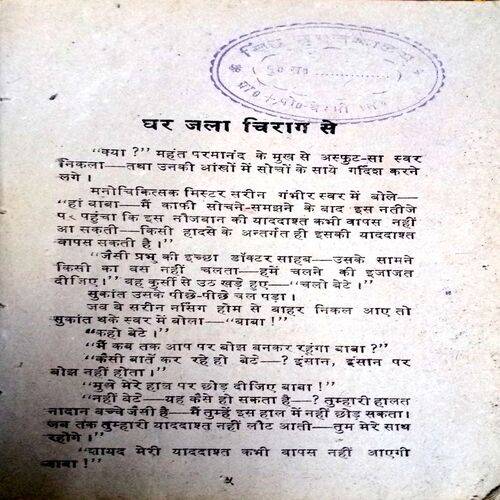 पु० सं०
घर जला चिराग से
“क्या ?” महंत परमानंद के मुख से अस्फुट-सा स्वर
निकला—तथा उनकी आंखों में सोचों के साये गर्दिश करने
लगे ।
मनोचिकित्सक मिस्टर सरीन गंभीर स्वर में बोले—
“हां बाबा—मैं काफी सोचने-समझने के बाद इस नतीजे
पर पहुंचा कि इस नौजवान की याददाश्त कभी वापस नहीं
आ सकती—किसी हादसे के अन्तर्गत ही इसकी याददाश्त
वापस आ सकती है ।”
“जैसी प्रभु की इच्छा डॉक्टर साहब—उसके सामने
किसी का बस नहीं चलता—हमें चलने की इजाजत
दीजिए !” वह कुर्सी से उठ खड़े हुए—“चलो बेटे ।”
सुकांत उसके पीछे-पीछे चल पड़ा ।
जब वे सरीन नर्सिंग होम से बाहर निकल आए तो
सुकांत थके स्वर में बोला—“बाबा !”
“कहो बेटे ।”
“मैं कब तक आप पर बोझ बनकर रहूंगा बाबा ?”
“कैसी बातें कर रहे हो बेटे—? इंसान, इंसान पर
बोझ नहीं होता ।”
“मुझे मेरे हाल पर छोड़ दीजिए बाबा !”
“नहीं बेटे—यह कैसे हो सकता है—? तुम्हारी हालत
नादान बच्चे जैसी है—मैं तुम्हें इस हाल में नहीं छोड़ सकता।
जब तक तुम्हारी याददाश्त नहीं लौट आती—तुम मेरे साथ
रहोगे ।”
“शायद मेरी याददाश्त कभी वापस नहीं आएगी
बाबा !”
५